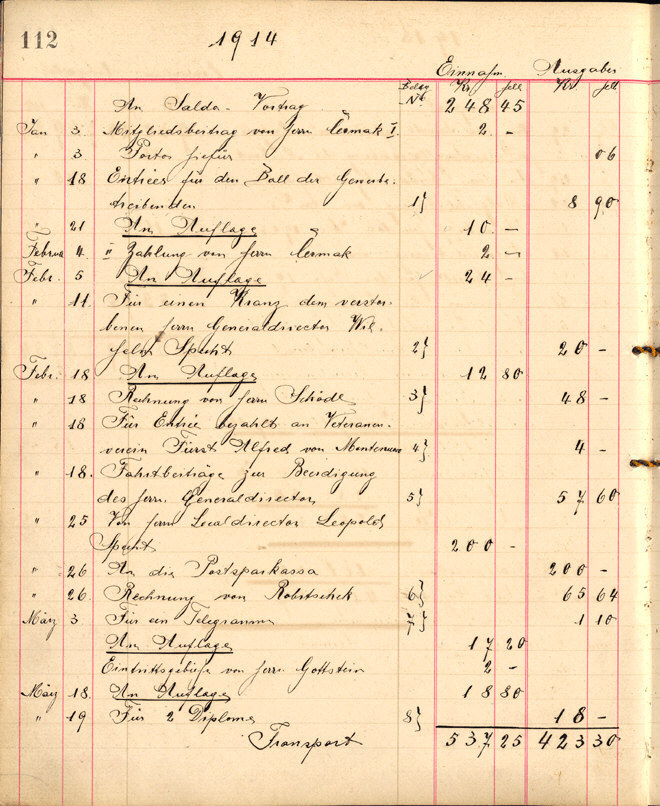 112 1914
Einnahm. Ausgaben
Beleg Kr. hell Kr. hell
An Saldo-Vortrag No 248 45
Jan 3. Mitgliedsbeitrag von Herrn Čermak I. 2. –
" 3 Porto hiefür 06
" 18 Entrées für den Ball der Gewerbe-
treibenden 1} 8 90
" 21 An Auflage 10 –
Februar 4. II Zahlung von Herrn Čermak 2 –
Febr. 5 An Auflage 24 –
" 11. Für einen Kranz dem verstor-
benen Herrn Generaldirector Wil-
helm Specht 2} 20 –
Febr. 18 An Auflage 12 80
" 18 Rechnung von Herrn Schödl 3} 48 –
" 18 Für Entrée bezahlt an Veteranen-
verein Fürst Alfred von Montenuovo 4} 4 –
" 18. Fahrtbeiträge zur Beerdigung
des Herrn Generaldirector 5} 57 60
" 25 Von Herrn Localdirector Leopold
Specht 200 –
" 26 An die Postsparkassa 200 –
" 26. Rechnung von Robitschek 6} 65 64
März 3 Für ein Telegramm 7} 1 10
An Auflage 17 20
Eintrittsgebühr von Herrn Gottstein 2 –
März 18. An Auflage 18 80
" 19 Für 2 Diplome 8} 18 –
Transport 537 25 423 30